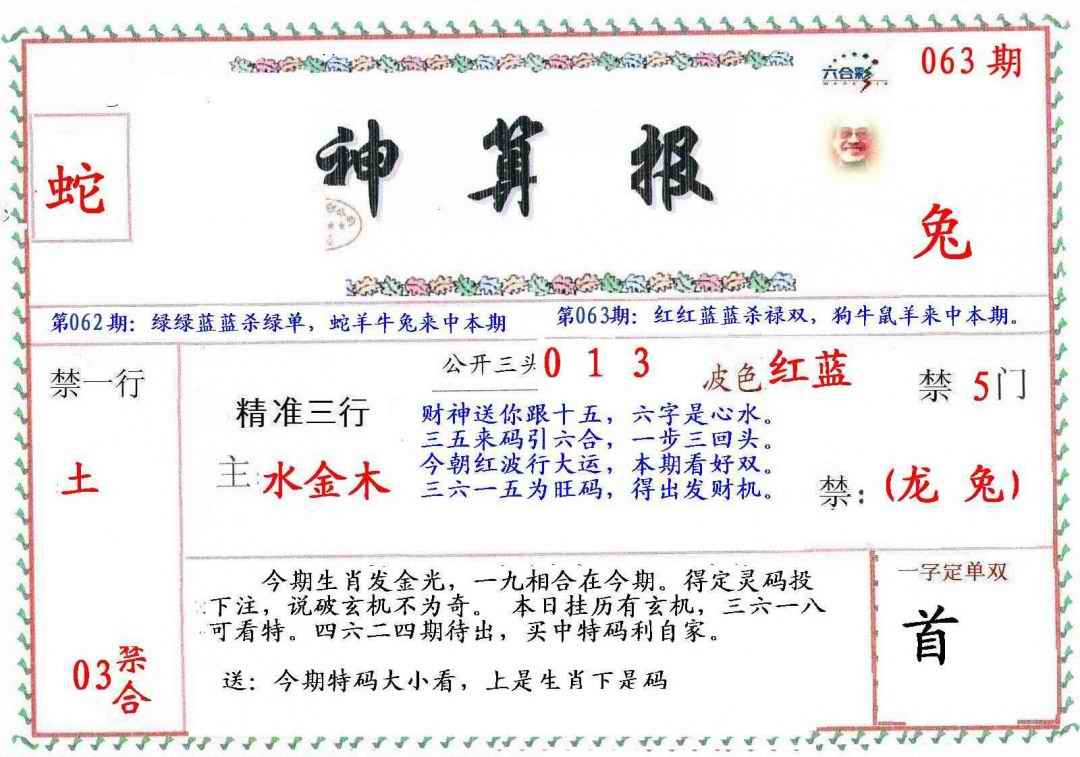 六合彩
063 期
神算报
蛇
兔
第062期：绿绿蓝蓝杀绿单，蛇羊牛兔来中本期
第063期：红红蓝蓝杀禄双，狗牛鼠羊来中本期。
禁一行
土
03禁合
公开三头 0 1 3
波色 红蓝
禁 5门
精准三行
主: 水金木
财神送你跟十五，六字是心水。
三五来码引六合，一步三回头。
今朝红波行大运，本期看好双。
三六一五为旺码，得出发财机。
禁：(龙 兔)
今期生肖发金光，一九相合在今期。得定灵码投
下注，说破玄机不为奇。 本日挂历有玄机，三六一八
可看特。四六二四期待出，买中特码利自家。
送：今期特码大小看，上是生肖下是码
一字定单双
首